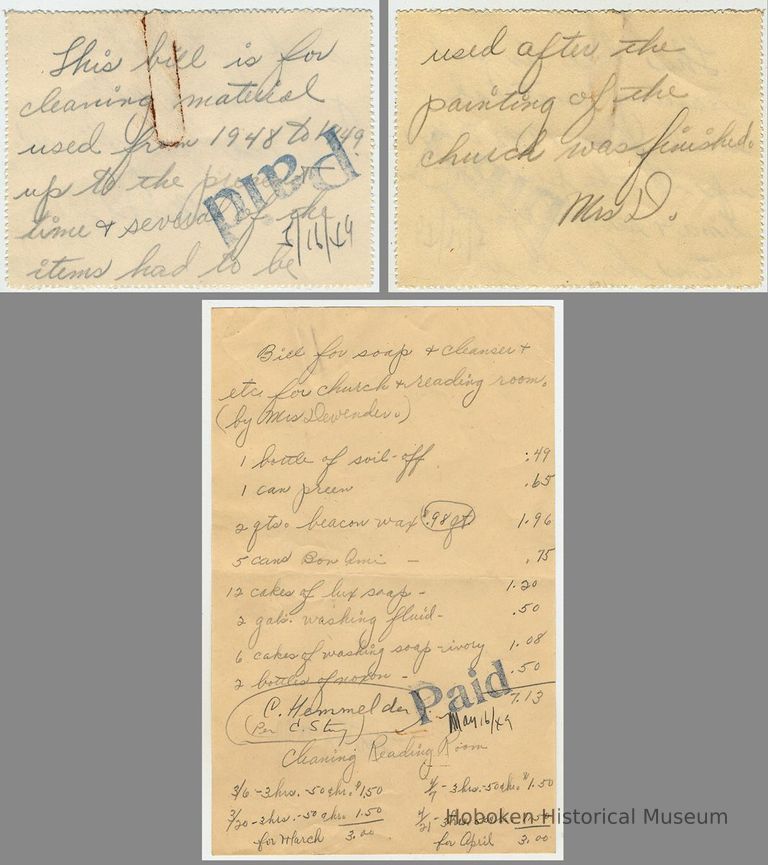 This bill is for
cleaning material
used from 1948 to 1949
up to the present
time & several of the
items had to be
Paid
5/16/49
used after the
painting of the
church was finished.
Mrs D.
Bill for soap & cleanser &
etc. for church & reading room.
(by Mrs Devender.)
1 bottle of soil-off .49
1 can preen .65
2 qts. beacon wax $.98 qt 1.96
5 cans Bon Ami — .75
12 cakes of lux soap - 1.20
2 gals. washing fluid- .50
6 cakes of washing soap - ivory 1.08
2 bottles of noxon - .50
7.13
Paid
May 16/49
C. Hemmelder
(Per E. )
Cleaning Reading Room
3/6 - 3 hrs. - 50¢ hr. $1.50 4/7 - 3 hrs. - 50¢ hr. $1.50
3/20 - 3 hrs. - 50¢ hr. 1.50 4/21 - 3 hrs.
for March 3.00 for April 3.00
Hoboken Historical Museum